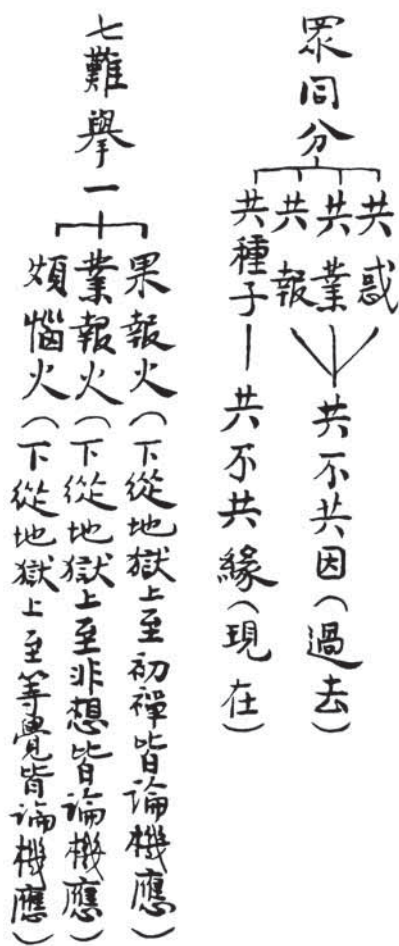 眾同分
共惑
共業
共報
共種子
共不共因(過去)
共不共緣(現在)
七難舉一
果報火(下從地獄上至初禪皆論機應)
業報火(下從地獄上至非想皆論機應)
煩惱火(下從地獄上至等覺皆論機應)